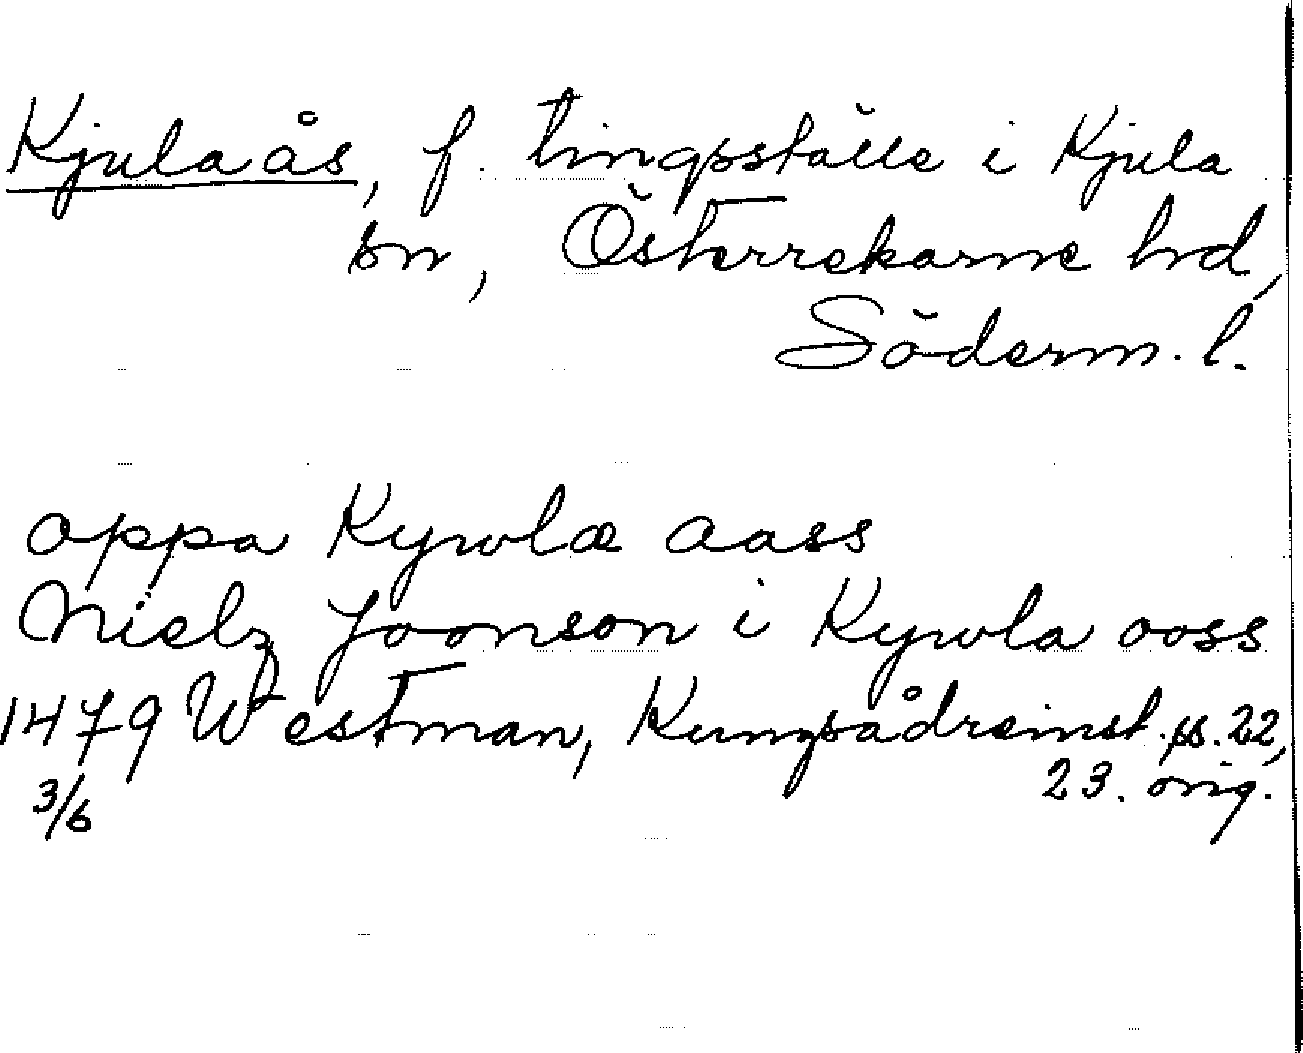 Kjulaås, f. tingsställe i Kjula
sn, Österrekarne hd,
Söderm. l.
oppa Kywlæ aass
Nielz Joonson i Kywla ooss
1479 Westman, Kungsådreinst. ss. 22,
3/6 23. orig.